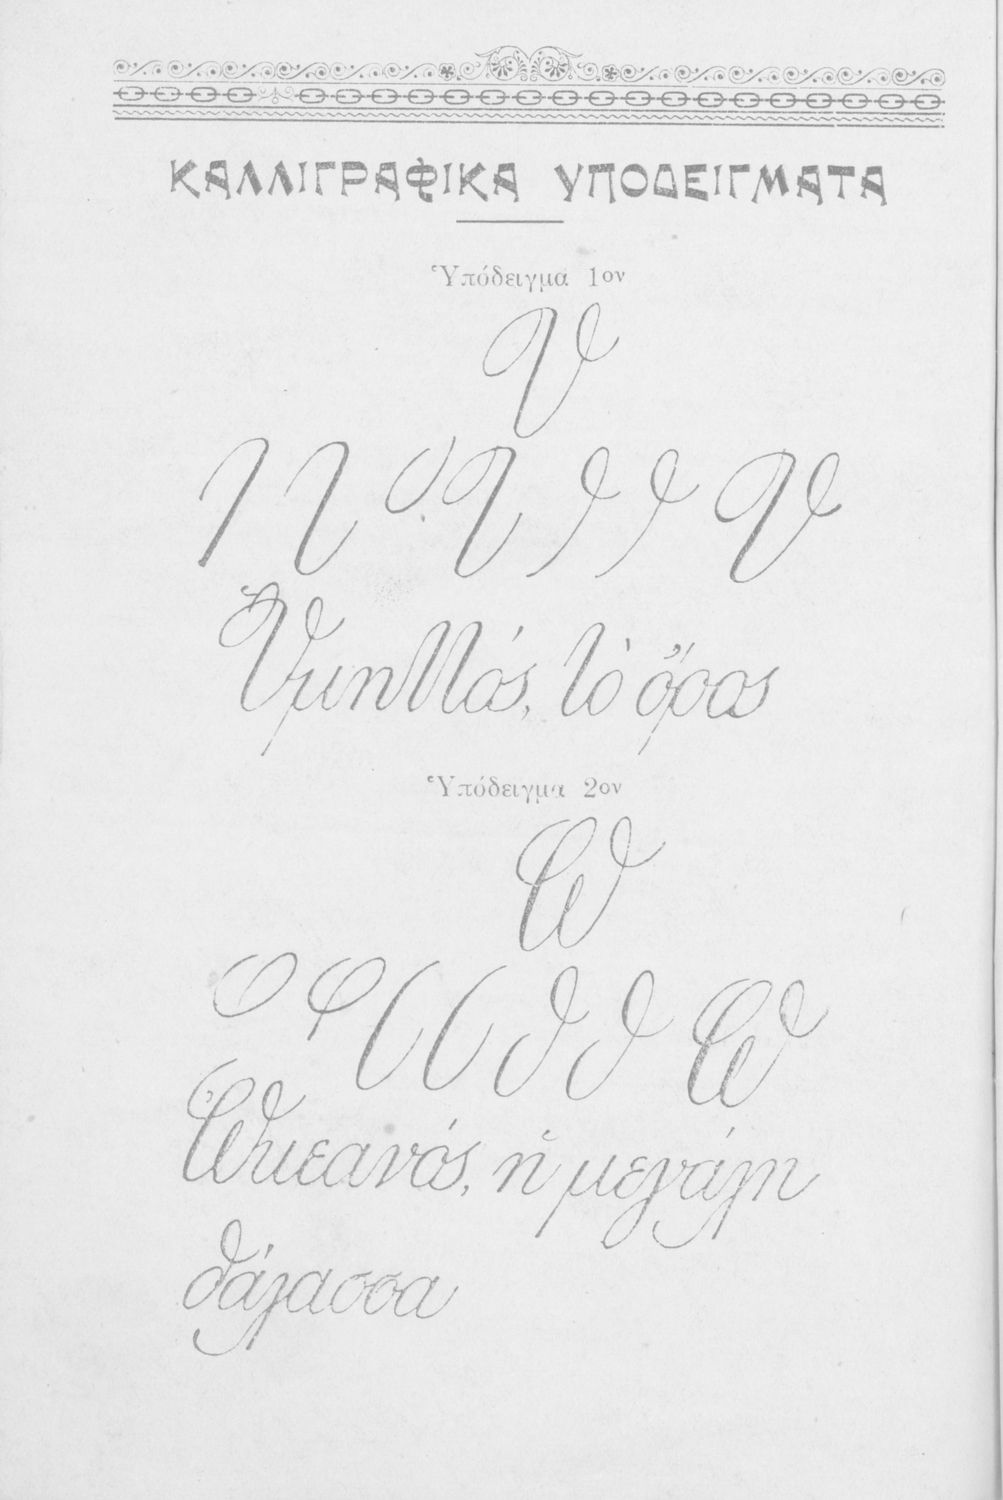 ΚΑΛΛΙΓΡΑΦΙΚΑ ΥΠΟΔΕΙΓΜΑΤΑ
Ὑπόδειγμα 1ον
Υ
Υ
Ὑμηττός, τὸ ὄρος
Ὑπόδειγμα 2ον
Ω
Ω
Ὠκεανός, ἡ μεγάλη
θάλασσα